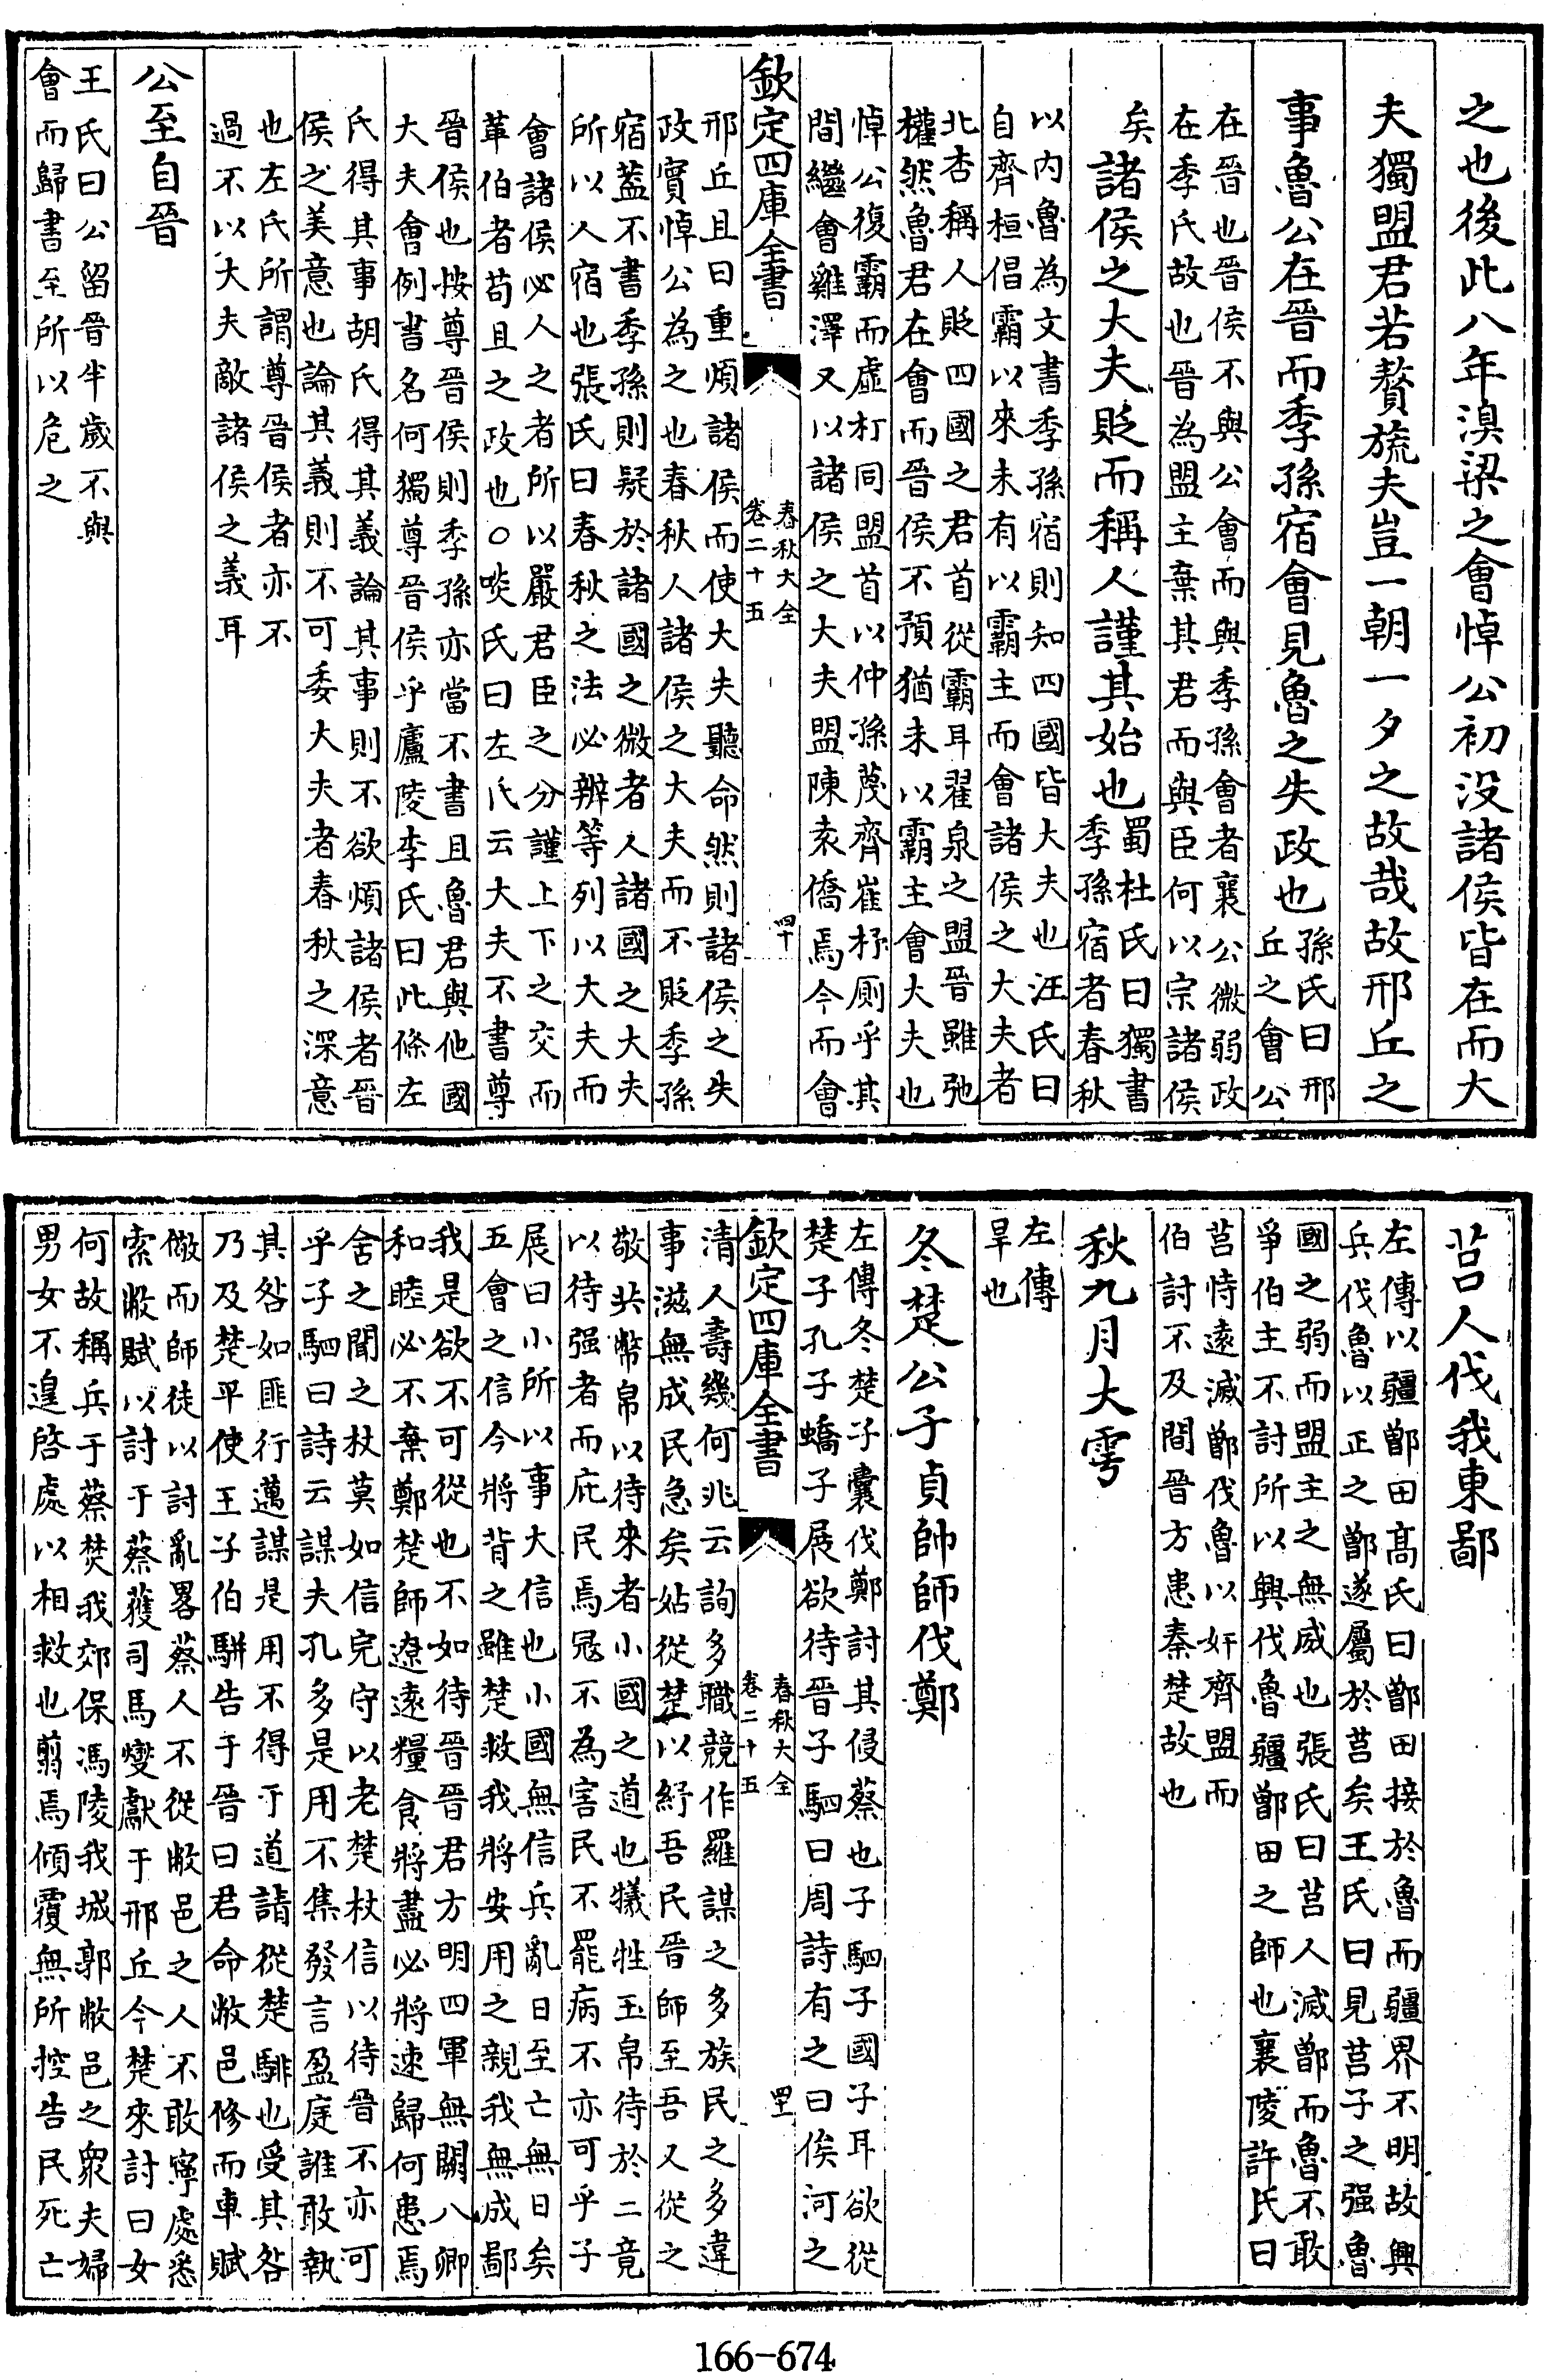 之也後此八年湨梁之會悼公初没諸侯皆在而大
夫獨盟君若贅旒夫豈一朝一夕之故哉故邢丘之
事魯公在晉而季孫宿會見魯之失政也
孫氏曰邢
丘之會公
在晉也晉侯不與公會而與季孫會者襄公微弱政
在季氏故也晉為盟主棄其君而與臣何以宗諸侯
矣
諸侯之大夫貶而稱人謹其始也
蜀杜氏曰獨書
季孫宿者春秋
以内魯為文書季孫宿則知四國皆大夫也汪氏曰
自齊桓倡霸以來未有以霸主而會諸侯之大夫者
北杏稱人貶四國之君首從霸耳翟泉之盟晉雖弛
權然魯君在會而晉侯不預猶未以霸主會大夫也
悼公復霸而虚朾同盟首以仲孫蔑齊崔杼厠乎其
間繼會雞澤又以諸侯之大夫盟陳袁僑焉今而會
欽定四庫全書
春秋大全
卷二十五
四十
邢丘且曰重煩諸侯而使大夫聽命然則諸侯之失
政實悼公為之也春秋人諸侯之大夫而不貶季孫
宿蓋不書季孫則疑於諸國之微者人諸國之大夫
所以人宿也張氏曰春秋之法必辨等列以大夫而
會諸侯必人之者所以嚴君臣之分謹上下之交而
革伯者苟且之政也○啖氏曰左氏云大夫不書尊
晉侯也按尊晉侯則季孫亦當不書且魯君與他國
大夫會例書名何獨尊晉侯乎廬陵李氏曰此條左
氏得其事胡氏得其義論其事則不欲煩諸侯者晉
侯之美意也論其義則不可委大夫者春秋之深意
也左氏所謂尊晉侯者亦不
過不以大夫敵諸侯之義耳
公至自晉
王氏曰公留晉半歲不與
會而歸書至所以危之
莒人伐我東鄙
左傳以疆鄫田高氏曰鄫田接於魯而疆界不明故興
兵伐魯以正之鄫遂屬於莒矣王氏曰見莒子之强魯
國之弱而盟主之無威也張氏曰莒人滅鄫而魯不敢
爭伯主不討所以興伐魯疆鄫田之師也襄陵許氏曰
莒恃遠滅鄫伐魯以奸齊盟而
伯討不及間晉方患秦楚故也
秋九月大雩
左傳
旱也
冬楚公子貞帥師伐鄭
左傳冬楚子囊伐鄭討其侵蔡也子駟子國子耳欲從
楚子孔子蟜子展欲待晉子駟曰周詩有之曰俟河之
欽定四庫全書
春秋大全
卷二十五
四十一
清人壽幾何兆云詢多職競作羅謀之多族民之多違
事滋無成民急矣姑從楚以紓吾民晉師至吾又從之
敬共幣帛以待來者小國之道也犧牲玉帛待於二竟
以待强者而庇民焉冦不為害民不罷病不亦可乎子
展曰小所以事大信也小國無信兵亂日至亡無日矣
五會之信今將背之雖楚救我將安用之親我無成鄙
我是欲不可從也不如待晉晉君方明四軍無闕八卿
和睦必不棄鄭楚師遼遠糧食將盡必將速歸何患焉
舍之聞之杖莫如信完守以老楚杖信以待晉不亦可
乎子駟曰詩云謀夫孔多是用不集發言盈庭誰敢執
其咎如匪行邁謀是用不得于道請從楚騑也受其咎
乃及楚平使王子伯駢告于晉曰君命敝邑修而車賦
儆而師徒以討亂畧蔡人不從敝邑之人不敢寧處悉
索敝賦以討于蔡獲司馬燮獻于邢丘今楚來討曰女
何故稱兵于蔡焚我郊保馮陵我城郭敝邑之衆夫婦
男女不遑啓處以相救也翦焉傾覆無所控告民死亡
166-674